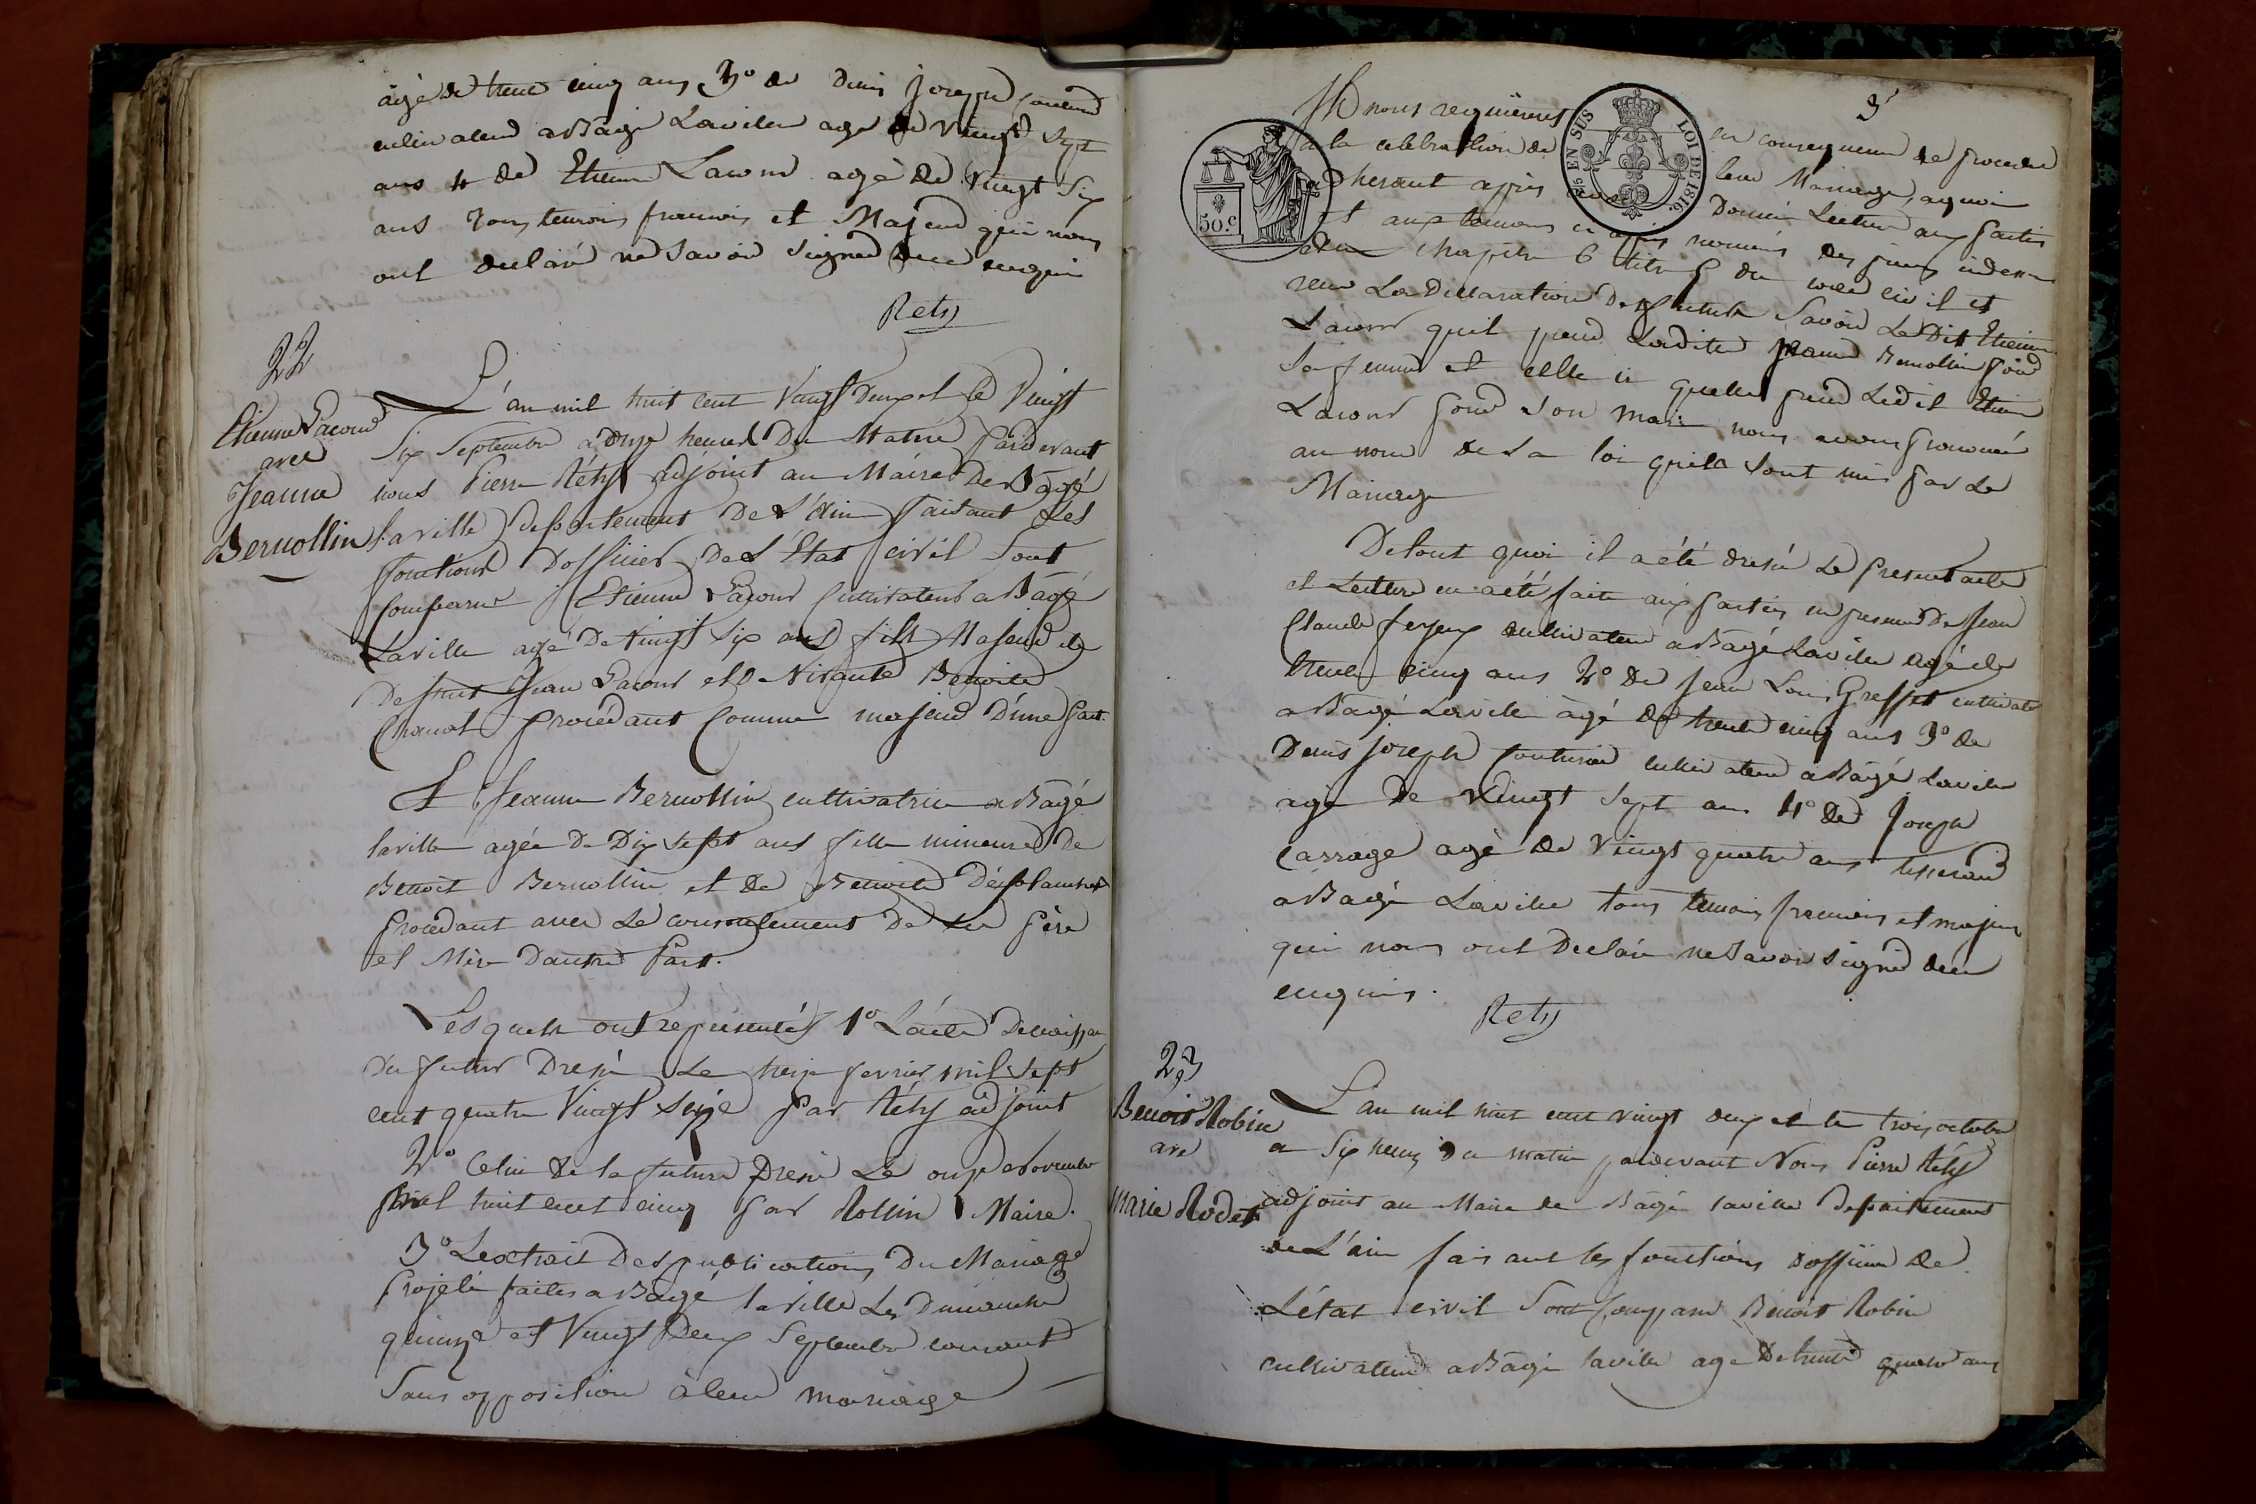 âgé de trente cinq ans 3° de Denis Joseph Couturier
cultivateur a Bagé Laville age de vingt sept
ans 4 de Etienne Lacour agé de vingt six
ans tous temoins francais et Majeur qui nous
ont declaré ne savoir signer de ce enquis
Rety
22
Etienne Lacour
avec
Jeanne
Bernollin
L'an mil huit cent Vingt Deux et le Vingt
Six Septembre a onze heures Du Matin pardevant
nous Pierre Réty adjoint au Maire De Bagé
laville departement De L'Ain faisant Les
fonctions D'officier De L'Etat civil Sont
Comparus Etienne Lacour Cultivateur a Bagé
Laville agé De Vingt Six ans fils Majeur de
Defunt Jean Lacour et Vivante Benoite
Chanal procédant Comme majeur D'une Part.
Et Jeanne Bernollin cultivatrice a Bagé
laville agée De Dix sept ans fille mineure De
Benoit Bernollin et de Benoite
procedant avec Le consentement De Ses père
et Mère D'autre Part.
Lesquels ont representés 1° L'acte De naissance
Du futur Dressé Le treize fevrier mil Sept
cent quatre Vingt Seize Par Réty adjoint
2° Celui de la future Dressé Le onze Novembre
mil huit cent cinq par Rollin Maire.
3° L'extrait Des publications Du Mariage
Projeté faites a Bagé laville Les Dimanche
quinze et Vingt Deux Septembre courant
Sans opposition à leur mariage
3
Ils nous requièrent en consequence de proceder
a la celebration de leur Mariage, a quoi
adherant après avoir Donné Lecture aux parties
et aux temoins ci après nommés des pieces cidessus
et du chapitre 6 titre 5 du code civil et
recu La Declaration Des futurs Savoir Ledit Etienne
Lacour quil prend Ladite Jeanne Bernollin pour
Sa femme et celle ci quelle prend Ledit Etienne
Lacour pour son mari nous avons prononcé
au nom de La loi quils sont unis par Le
Mariage
De tout quoi il a été dressé Le present acte
et Lecture en a été faite aux parties en presence De Jean
Claude cultivateur a Bagé Laville agé de
trente cinq ans 2° De Jean Louis Greffet cultivateur
a Bagé Laville âgé de trente cinq ans 3° de
Denis Joseph Couturier cultivateur a Bâgé Laville
agé De Vingt sept ans 4° De Joseph
Carrage agé de Vingt quatre ans tisserand
a Bagé Laville tous temoins francais et majeur
qui nous ont Declaré ne Savoir signer de ce
enquis.
Rety
23
Benoit Robin
avec
Marie Rodet
L'an mil huit cent vingt deux et le trois octobre
a Six heures Du matin pardevant Nous Pierre Réty
adjoint au Maire de Bâgé laville Departement
de L'ain faisant les fonctions dofficier de
L'état civil Sont Comparu Benoit Robin
cultivateur a Bâgé laville age De trente quatre ans
50.c
25c EN SUS
LOI DE 1816.